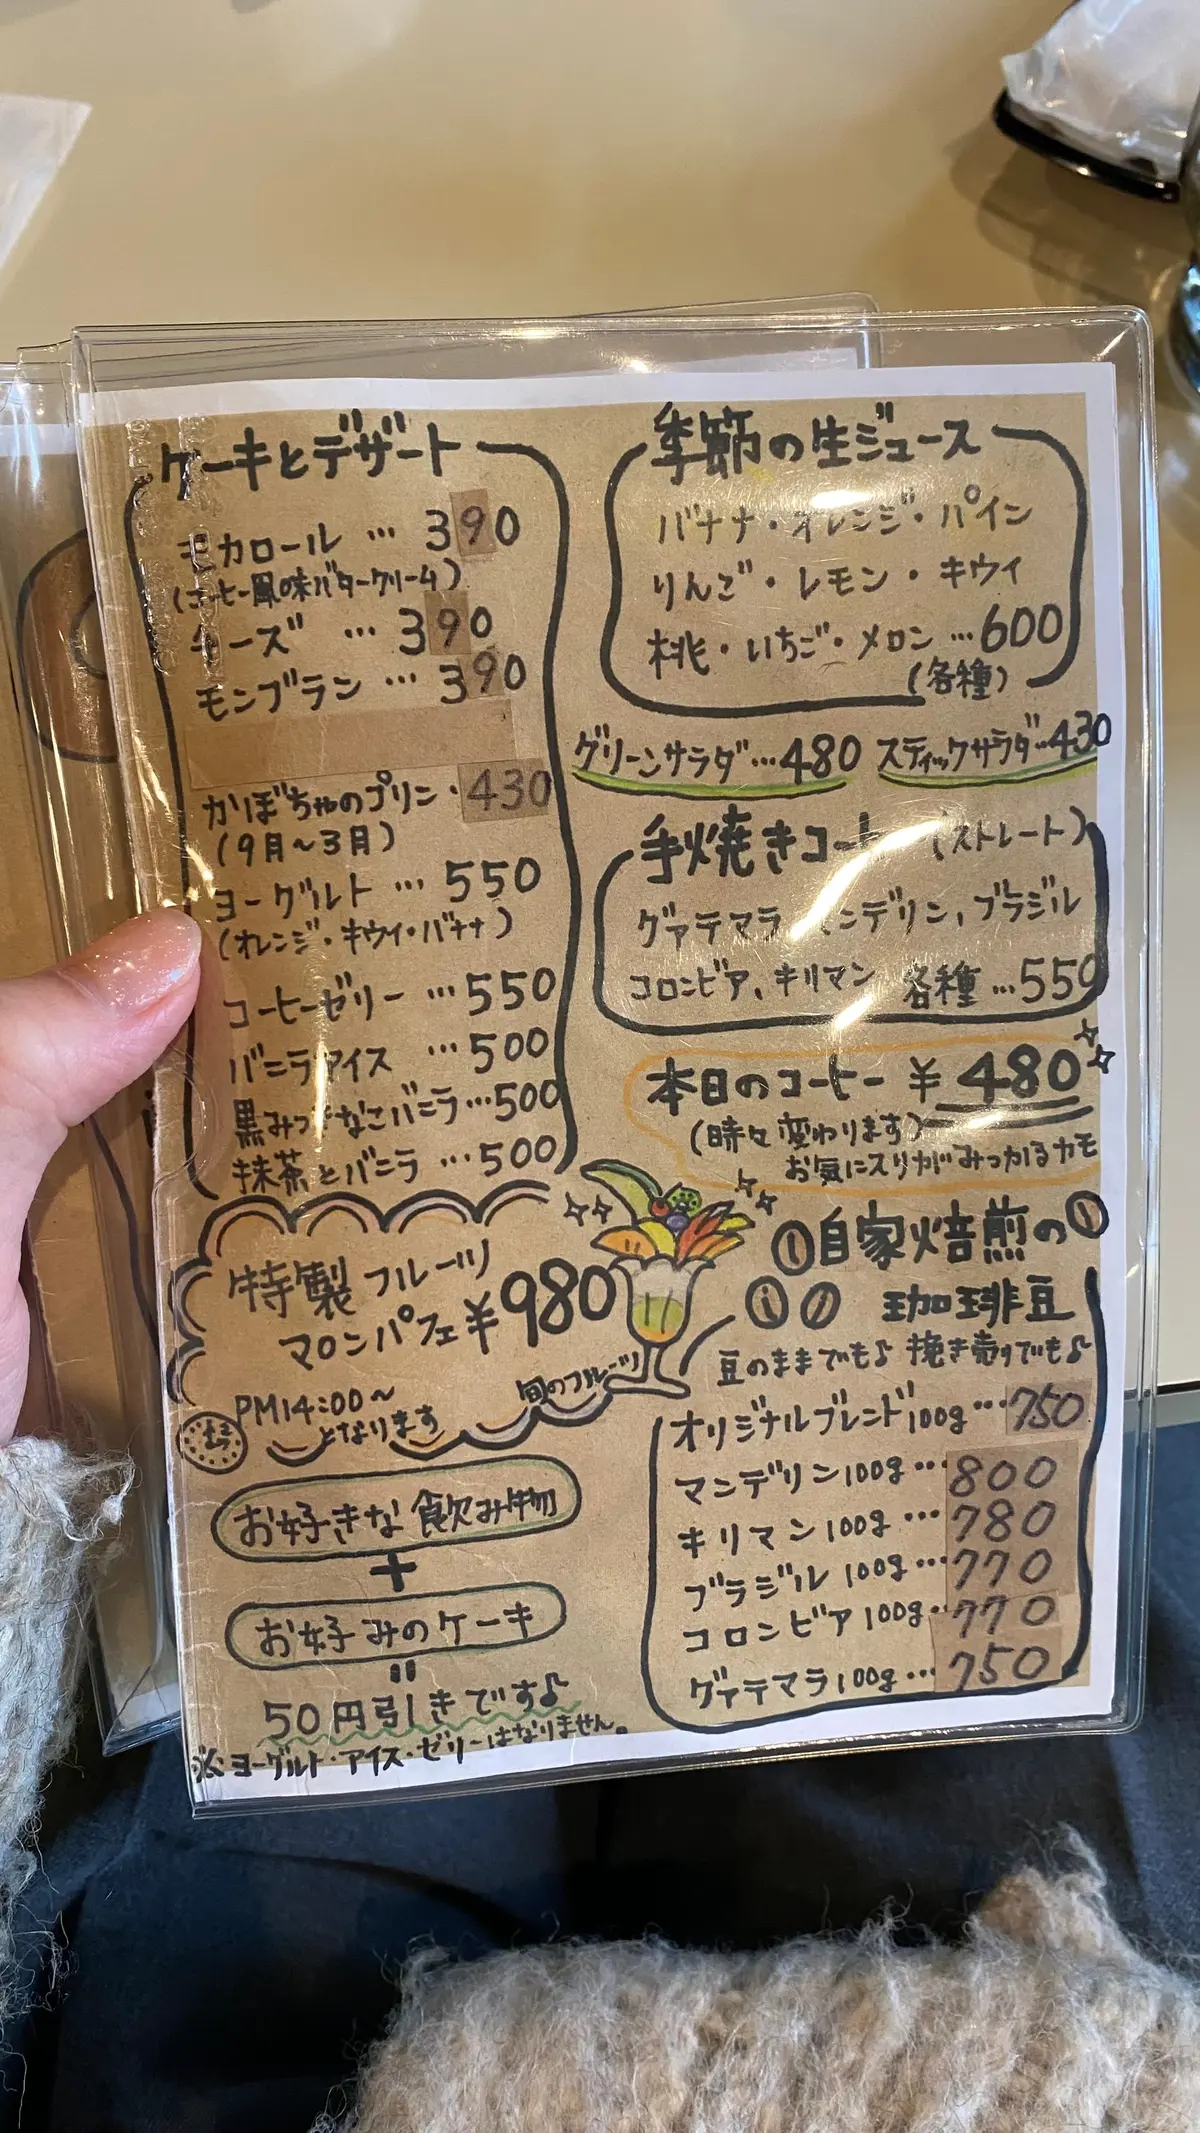 ケーキとデザート
モカロール … 390
(コーヒー風味バタークリーム)
チーズ … 390
モンブラン … 390
かぼちゃのプリン・430
(9月〜3月)
ヨーグルト … 550
(オレンジ・キウイ・バナナ)
コーヒーゼリー … 550
バニラアイス … 500
黒みつきなこバニラ … 500
抹茶とバニラ … 500
特製フルーツ
マロンパフェ ¥980
旬のフルーツ
PM14:00〜
となります
お好きな飲み物
+
お好みのケーキ
"
50円引きです♪
※ヨーグルト・アイス・ゼリーはなりません。
季節の生ジュース
バナナ・オレンジ・パイン
りんご・レモン・キウイ
桃・いちご・メロン … 600
(各種)
グリーンサラダ … 480
スティックサラダ … 430
手焼きコーヒー (ストレート)
グァテマラ、マンデリン、ブラジル
コロンビア、キリマン 各種 … 550
本日のコーヒー ¥480
(時々変わります)
お気に入りがみつかるカモ
自家焙煎の
珈琲豆
豆のままでも♪ 挽き売りでも♪
オリジナルブレンド100g … 750
マンデリン100g … 800
キリマン100g … 780
ブラジル100g … 770
コロンビア100g … 770
グァテマラ100g … 750